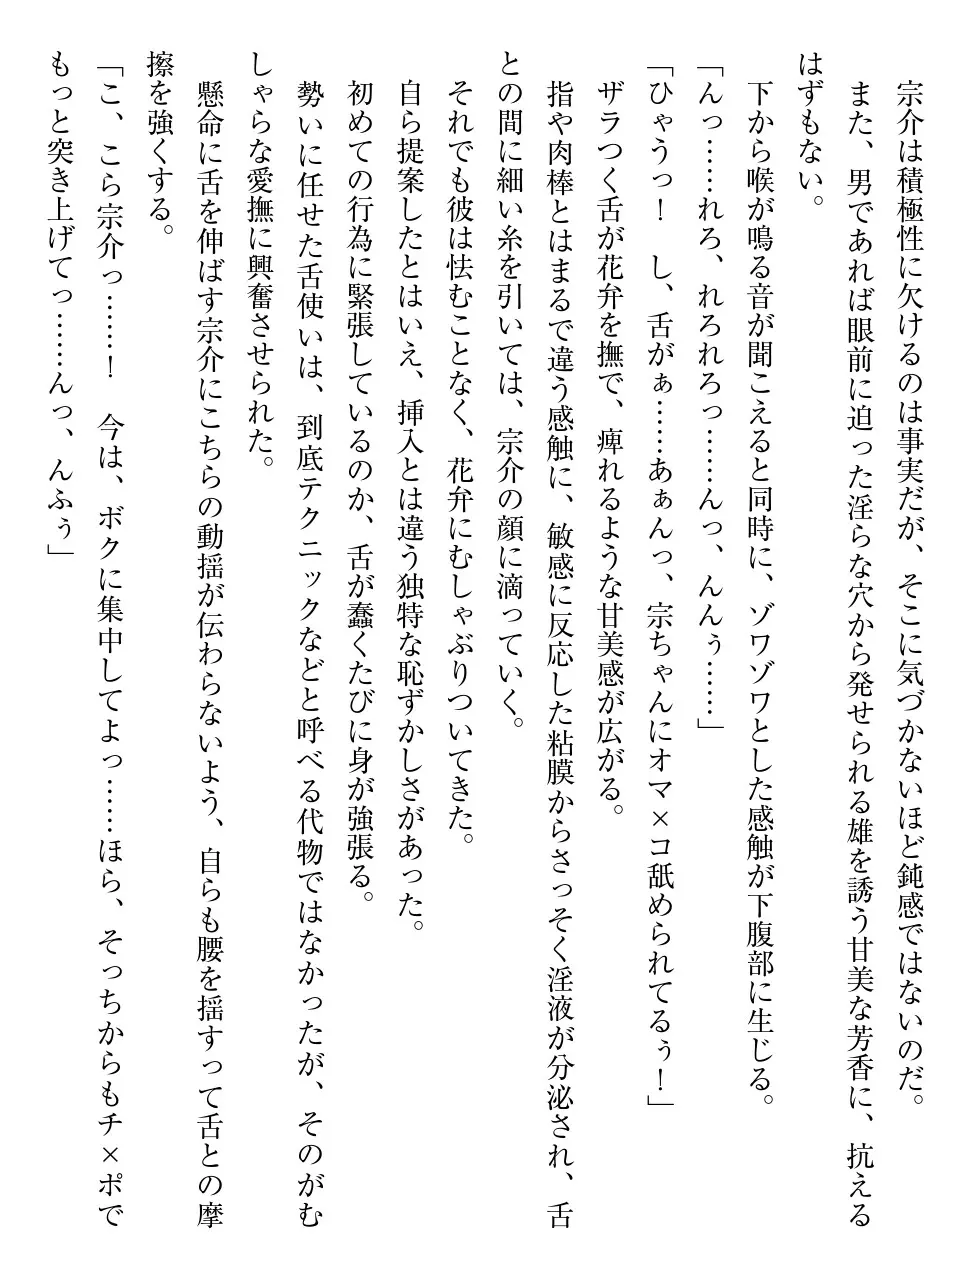 宗介は積極性に欠けるのは事実だが、そこに気づかないほど鈍感ではないのだ。
また、男であれば眼前に迫った淫らな穴から発せられる雄を誘う甘美な芳香に、抗える
はずもない。
下から喉が鳴る音が聞こえると同時に、ゾワゾワとした感触が下腹部に生じる。
「んっ……れろ、れろれろっ……んっ、んんぅ……」
「ひゃうっ！　し、舌がぁ……あぁんっ、宗ちゃんにオマ×コ舐められてるぅ！」
ザラつく舌が花弁を撫で、痺れるような甘美感が広がる。
指や肉棒とはまるで違う感触に、敏感に反応した粘膜からさっそく淫液が分泌され、舌
との間に細い糸を引いては、宗介の顔に滴っていく。
それでも彼は怯むことなく、花弁にむしゃぶりついてきた。
自ら提案したとはいえ、挿入とは違う独特な恥ずかしさがあった。
初めての行為に緊張しているのか、舌が蠢くたびに身が強張る。
勢いに任せた舌使いは、到底テクニックなどと呼べる代物ではなかったが、そのがむ
しゃらな愛撫に興奮させられた。
懸命に舌を伸ばす宗介にこちらの動揺が伝わらないよう、自らも腰を揺すって舌との摩
擦を強くする。
「こ、こら宗介っ……！　今は、ボクに集中してよっ……ほら、そっちからもチ×ポで
もっと突き上げてっ……んっ、んふぅ」